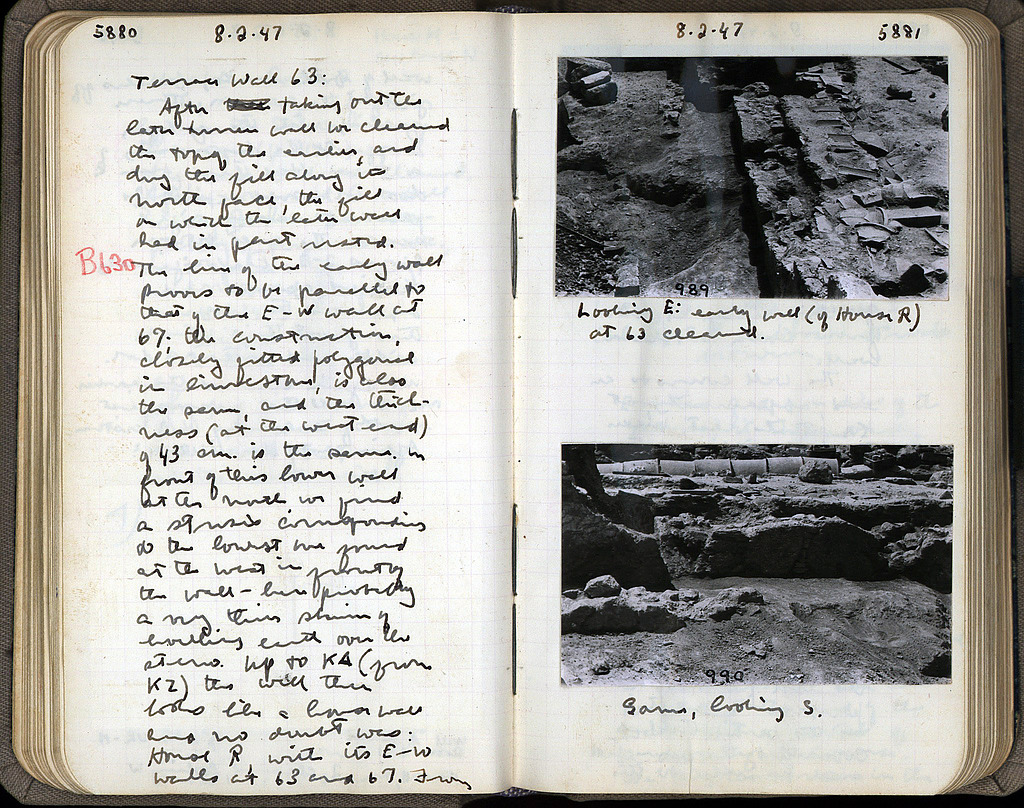 5880
8.2.47
Terrace Wall 63:
After taking out the
later terrace wall we cleaned
the top of the earlier, and
dug the fill along its
north face, the fill
on which the later wall
had in part rested.
B630
The line of the early wall
proves to be parallel to
that of the E-W wall at
67; the construction,
closely fitted polygonal
in limestone, is also
the same, and the thick-
ness (at the west end)
of 43 cm. is the same. In
front of this lower wall
at the north we found
a strosis corresponding
to the lowest we found
at the west in front of
the wall – here probably
a very thin strosis of
earth over the
stereo. Up to KA (from
KZ) the wall then
looks like a house wall
and no doubt was:
House R, with its E-W
walls at 63 and 67.
8.2.47
5881
989
Looking E: early wall (of House R)
at 63 cleaned.
990
Same, looking S.